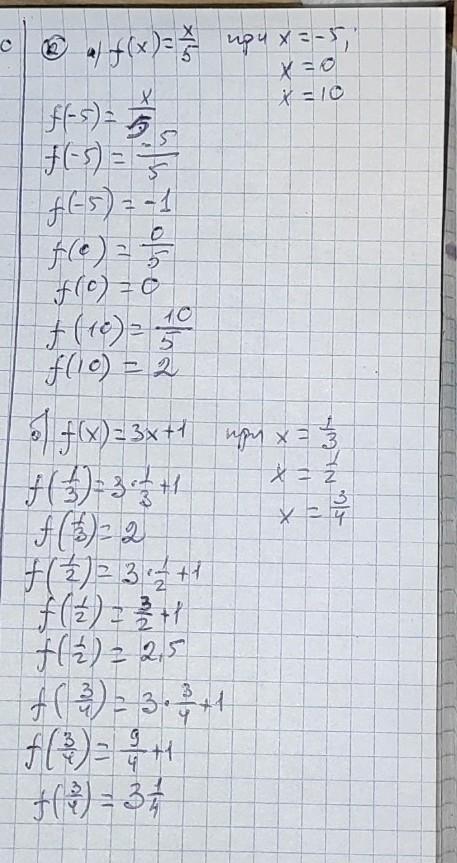 с
② а) f(x) = x/5 при x = -5;
x = 0
x = 10
f(-5) = x/5
f(-5) = -5/5
f(-5) = -1
f(0) = 0/5
f(0) = 0
f(10) = 10/5
f(10) = 2
б) f(x) = 3x+1 при x = 1/3
x = 1/2
x = 3/4
f(1/3) = 3·1/3+1
f(1/3) = 2
f(1/2) = 3·1/2+1
f(1/2) = 3/2+1
f(1/2) = 2,5
f(3/4) = 3·3/4+1
f(3/4) = 9/4+1
f(3/4) = 3 1/4